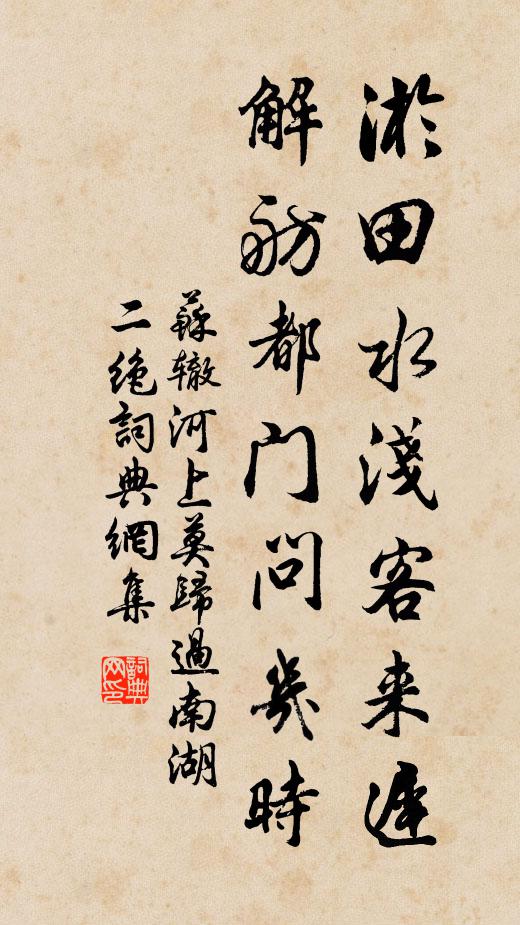 淤田水淺客来遲
解舫都门问幾時
蘇辙河上莫歸過南湖
二绝詞典網集
詞典
网印